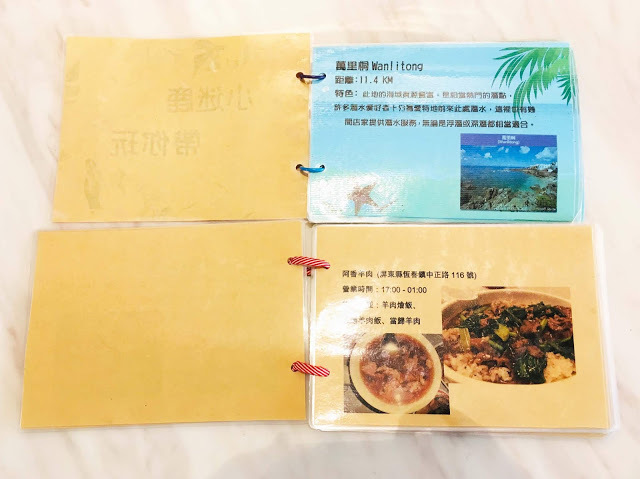 小迷鹿
帶你玩
萬里桐 Wanlitong
距離:11.4 KM
特色： 此地的海域資源豐富，是相當熱門的潛點，
許多潛水愛好者十分喜愛特地前來此處潛水，這裡也有幾
間店家提供潛水服務，無論是浮潛或深潛都相當適合。
萬里桐
(Wanlitong)
阿香羊肉 (屏東縣恆春鎮中正路 116 號)
營業時間：17:00 - 01:00
：羊肉燴飯、
羊肉飯、當歸羊肉